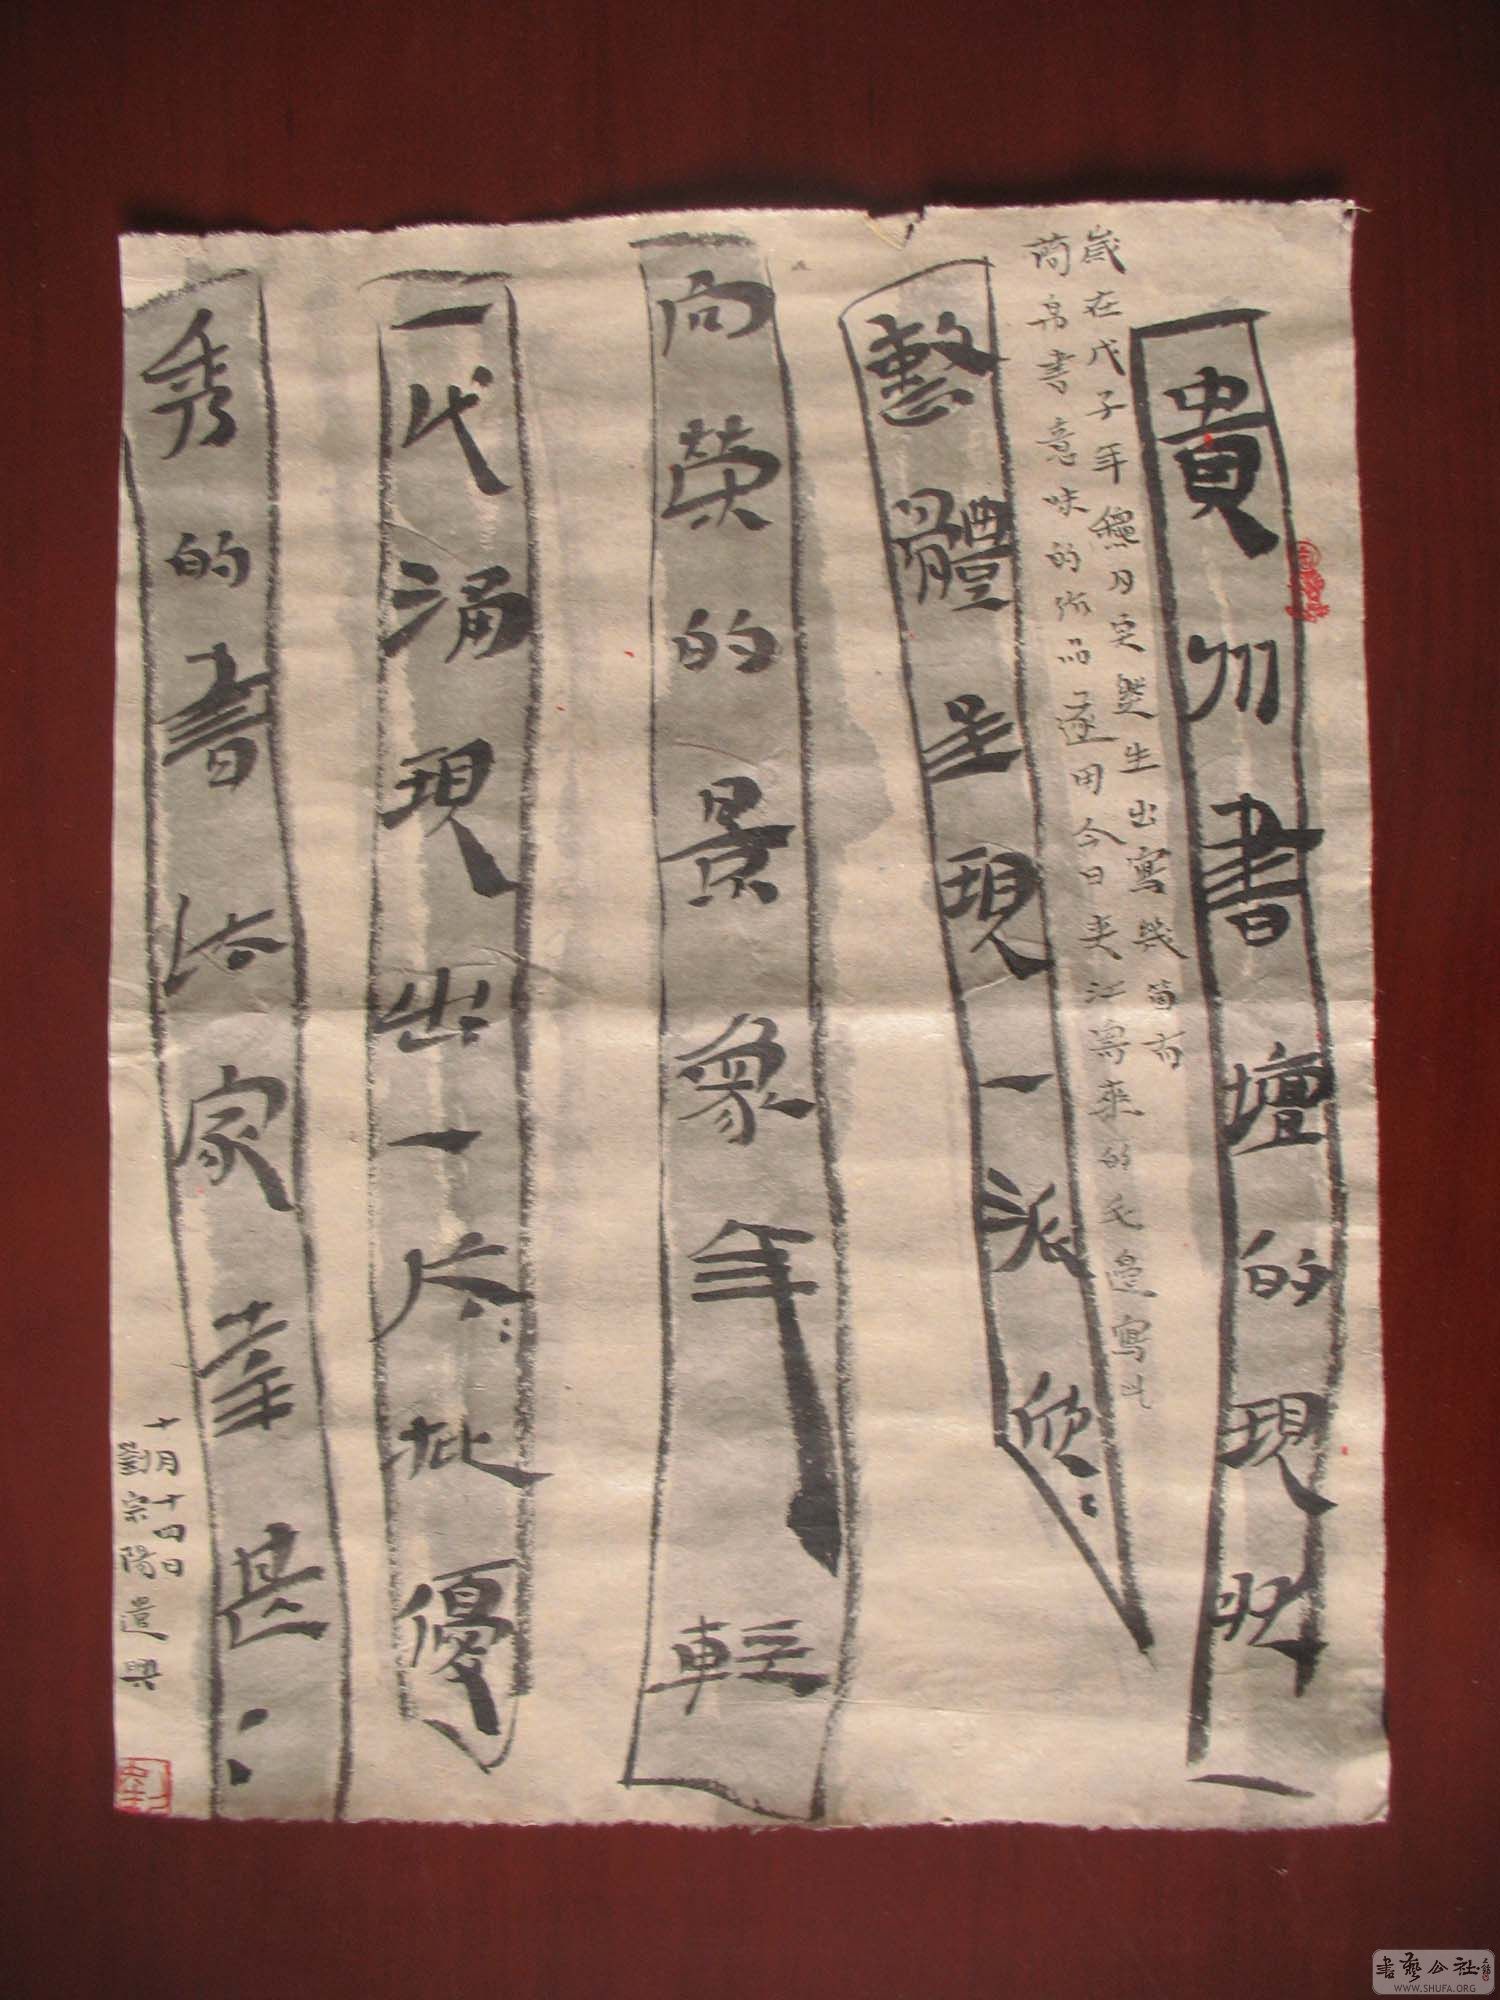 貴州書壇的現狀
歲在戊子年 月突然生出寫幾簡有
簡帛書意味的作品遂用今日夾江寄來的毛邊寫此
整體呈現一派欣〻
向榮的景象年輕
一代涌現出一大〻批優
秀的書法家幸甚〻
十月十四日
劉宗陽遣興
書藝公社
WWW.SHUFA.ORG